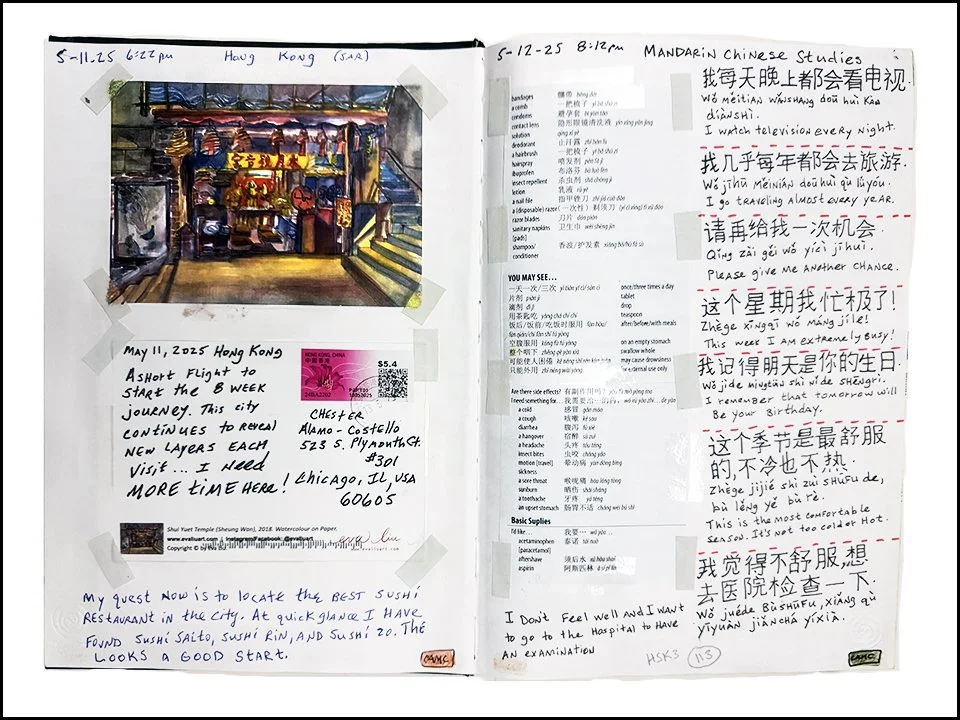 5-11-25 6:22pm Hong Kong (SAR)
May 11, 2025 Hong Kong
A short flight to
start the 8 week
journey. This city
continues to reveal
new layers each
visit... I need
more time here!
HONG KONG, CHINA
中國香港
$5.4
Chester
Alamo-Costello
523 S. Plymouth Ct.
#301
Chicago, IL, USA
60605
Shui Yuet Temple (Sheung Wan), 2018. Watercolour on Paper.
www.evaliuart.com | Instagram/Facebook: @evaliuart
Copyright © by Eva Liu
My quest now is to locate the best sushi
restaurant in the city. At quick glance I have
found Sushi Saito, Sushi Rin, and Sushi Zo. The
looks a good start.
CAMC
5-12-25 8:12pm Mandarin Chinese Studies
bandages 绷带 bēng dài
a comb 一把梳子 yì bǎ shū zi
condoms 避孕套 bì yùn tào
contact lens 隐形眼镜清洗液 yǐn xíng yǎn jìng
solution qīng xǐ yè
deodorant 止汗露 zhǐ hàn lù
a hairbrush 一把梳子 yì bǎ shū zi
hairspray 喷发剂 pēn fà jì
ibuprofen 布洛芬 bù luò fēn
insect repellent 杀虫剂 shā chóng jì
lotion 乳液 rǔ yè
a nail file 指甲锉刀 zhǐ jiǎ cuò dāo
a (disposable) razor (一次性) 剃须刀 (yí cì xìng) tì xū dāo
razor blades 刀片 dāo piàn
sanitary napkins 卫生巾 wèi shēng jīn
[pads]
shampoo/ 香波/护发素 xiāng bō/hù fà sù
conditioner
YOU MAY SEE...
一天一次/三次 yì tiān yí cì/sān cì once/three times a day
片剂 piàn jì tablet
滴剂 dī jì drop
用茶匙吃 yòng chá chí chī teaspoon
饭后/饭前/吃饭时服用 fàn hòu/ after/before/with meals
fàn qián/chī fàn shí fú yòng
空腹服用 kōng fù fú yòng on an empty stomach
整个咽下 zhěng gè yàn xià swallow whole
可能使人困倦 kě néng shǐ rén kùn juàn may cause drowsiness
只能外用 zhǐ néng wài yòng for external use only
Are there side effects? 有副作用吗? yǒu fù zuò yòng ma
I need something for... 我需要治...的药。 wǒ xū yào zhì...de yào
a cold 感冒 gǎn mào
a cough 咳嗽 ké sou
diarrhea 腹泻 fù xiè
a hangover 宿醉 sù zuì
a headache 头疼 tóu téng
insect bites 虫咬 chóng yǎo
motion [travel] 晕动病 yùn dòng bìng
sickness
a sore throat 喉咙痛 hóu lóng tòng
sunburn 晒伤 shài shāng
a toothache 牙疼 yá téng
an upset stomach 肠胃不适 cháng wèi bú shì
Basic Suplies
I'd like... 我要... wǒ yào...
acetaminophen 泰诺 tài nuò
[paracetamol]
aftershave 须后水 xū hòu shuǐ
aspirin 阿斯匹林 ā sī pǐ lín
我每天晚上都会看电视.
Wǒ měitiān wǎnshang doū huì kàn
diànshì.
I watch television every night.
我几乎每年都会去旅游.
Wǒ jīhū měinián doū huì qù lǚyóu.
I go traveling almost every year.
请再给我一次机会.
Qǐng zài gěi wǒ yícì jīhuì.
Please give me another chance.
这个星期我忙极了!
Zhège xīngqī wǒ máng jíle!
This week I am extremely busy!
我记得明天是你的生日.
Wǒ jìde míngtiān shì nǐde shēngrì.
I remember that tomorrow will
be your birthday.
这个季节是最舒服
的,不冷也不热.
Zhège jìjié shì zuì shūfu de,
bù lěng yě bù rè.
This is the most comfortable
season. It's not too cold or hot.
我觉得不舒服,想
去医院检查一下.
Wǒ juéde bùshūfu, xiǎng qù
yīyuàn jiǎnchá yíxià.
I don't feel well and I want
to go to the hospital to have
an examination
HSK3 113
CAMC